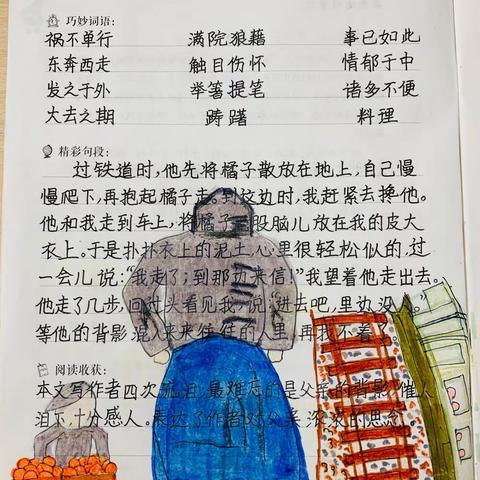 巧妙词语:
祸不单行 满院狼藉 事已如此
东奔西走 触目伤怀 情郁于中
发之于外 举箸提笔 诸多不便
大去之期 踌躇 料理
精彩句段:
过铁道时,他先将橘子散放在地上,自己慢
慢爬下,再抱起橘子走。到这边时,我赶紧去搀他。
他和我走到车上,将橘子一股脑儿放在我的皮大
衣上。于是扑扑衣上的泥土,心里很轻松似的,过
一会儿说:“我走了,到那边来信!”我望着他走出去。
他走了几步,回过头看见我,说“进去吧,里边没人。”
等他的背影混入来来往往的人里,再找不着了
阅读收获:
本文写作者四次流泪,最难忘的是父亲的背影,催人
泪下,十分感人。表达了作者对父亲深农的思念。